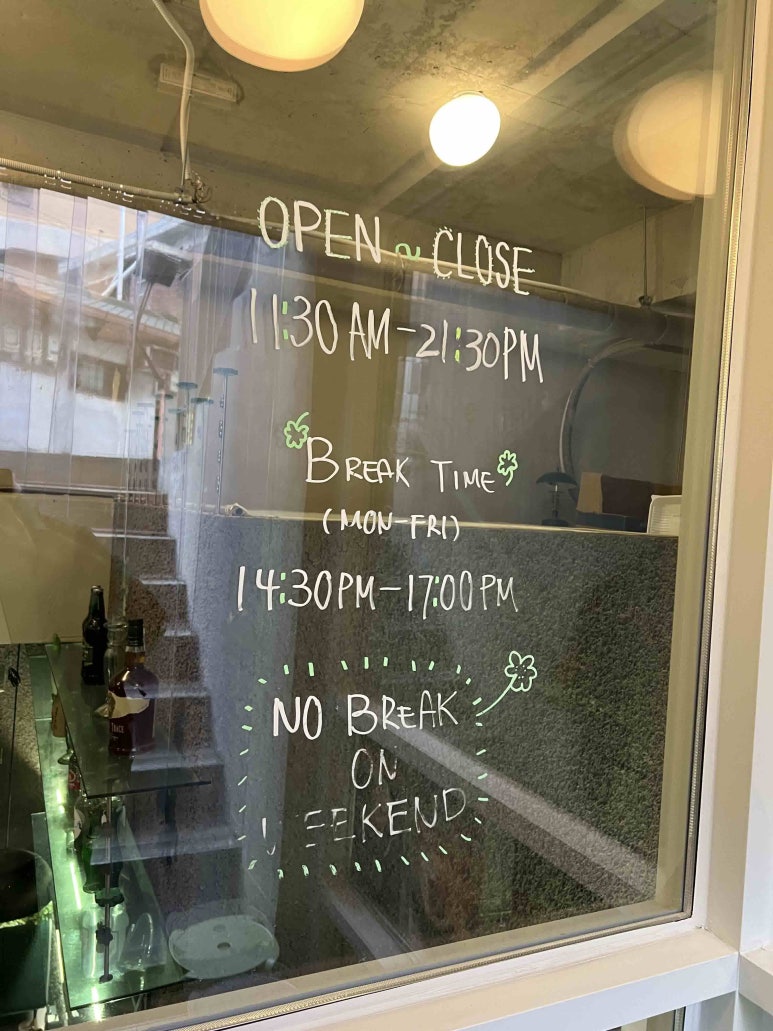 OPEN ~ CLOSE
11:30 AM - 21:30PM
BREAK TIME
(MON-FRI)
14:30PM - 17:00PM
NO BREAK
ON
WEEKEND